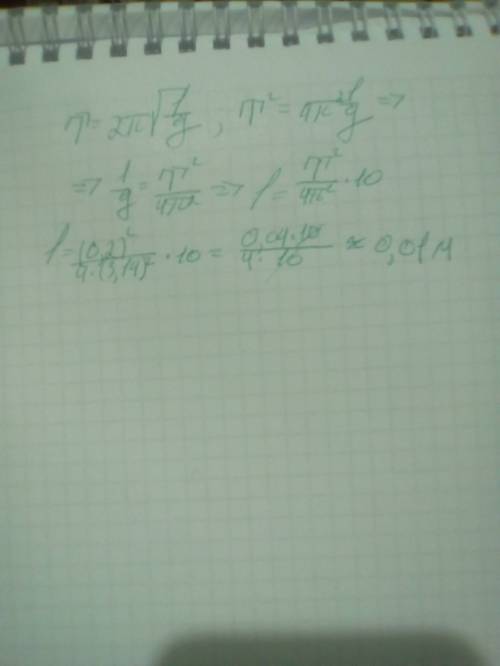 T = 2π√(l/g) ; T² = 4π² l/g =>
=> l/g = T²/4π² => l = T²/4π² · 10
l = (0,2)²/4·(3,14)² · 10 = 0,04·10/4·10 ≈ 0,01 м